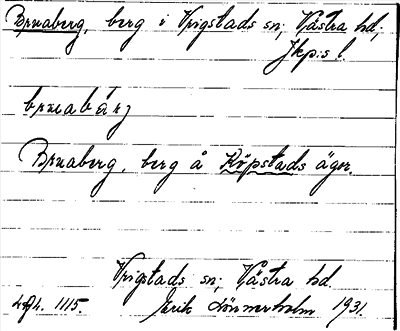 Bruaberg, berg i Vrigstads sn; Västra hd;
Jkp:s l.
bruabärj
Bruaberg, berg å Köpstads ägor.
Vrigstads sn; Västra hd.
Acc. 1115. Erik Lönnerholm 1931.